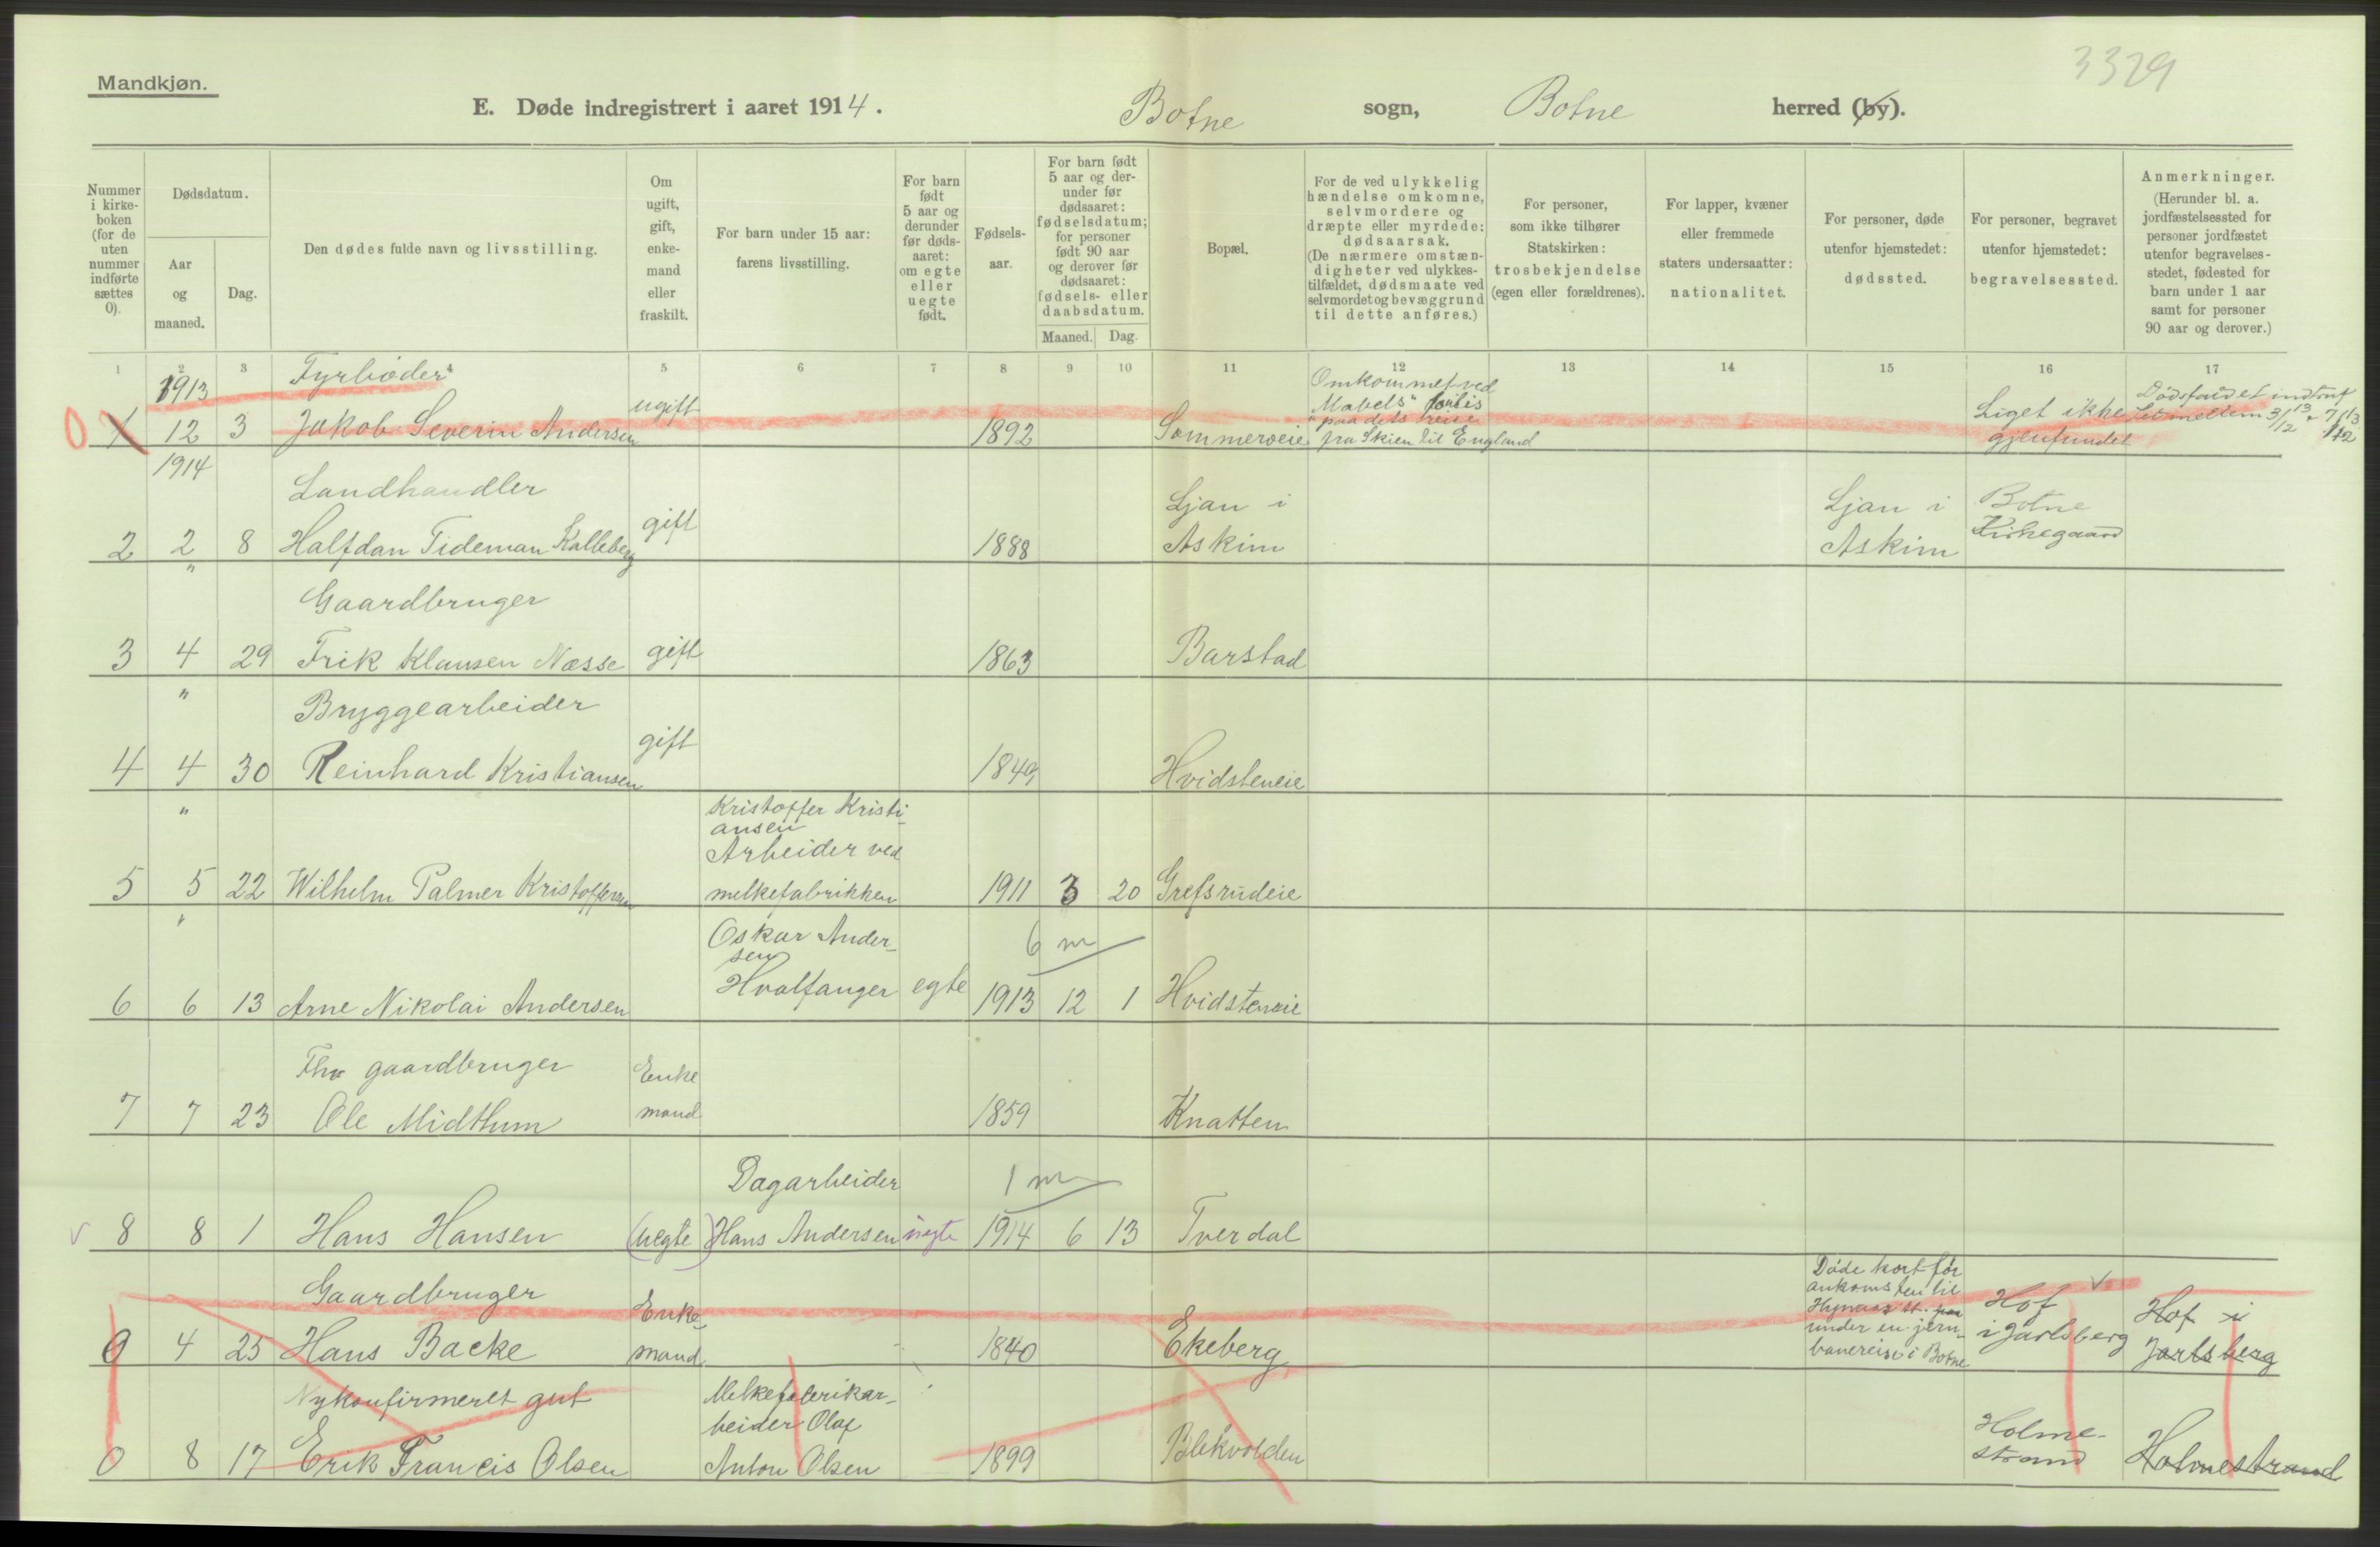 3329
Mandkjøn.
E. Døde indregistrert i aaret 1914. Botne sogn, Botne herred (by).
Nummer i kirke- boken (for de uten nummer indførte sættes 0).
Dødsdatum.
Aar og maaned.
Dag.
Den dødes fulde navn og livsstilling.
Om ugift, gift, enke- mand eller fraskilt.
For barn under 15 aar: farens livsstilling.
For barn født 5 aar og derunder før døds- aaret: om egte eller uegte født.
Fødsels- aar.
For barn født 5 aar og der- under før dødsaaret: fødselsdatum; for personer født 90 aar og derover før dødsaaret: fødsels- eller daabsdatum.
Maaned. Dag.
Bopæl.
For de ved ulykkelig hændelse omkomne, selvmordere og dræpte eller myrdede: dødsaarsak. (De nærmere omstæn- digheter ved ulykkes- tilfældet, dødsmaate ved selvmord og bevæggrund til dette anføres.)
For personer, som ikke tilhører Statskirken: trosbekjendelse (egen eller forældrenes).
For lapper, kvæner eller fremmede staters undersaatter: nationalitet.
For personer, døde utenfor hjemstedet: dødssted.
For personer, begravet utenfor hjemstedet: begravelsessted.
Anmerkninger. (Herunder bl. a. jordfæstelsessted for personer jordfæstet utenfor begravelses- stedet, fødested for barn under 1 aar samt for personer 90 aar og derover.)
1 2 3 4 5 6 7 8 9 10 11 12 13 14 15 16 17
1913 Fyrbøder Omkommet ved Dødsfaldet indtraf
0 1 12 3 Jakob Severin Andersen ugift 1892 Sommerøeie "Mabels" forlis paa dets reise fra Skien til England Liget ikke gjenfundet mellem 3/12 13 7/12 13
1914 Landhandler Ljan i Ljan i Botne
2 2 8 Halfdan Tideman Kalleberg gift 1888 Askim Askim Kirkegaard
" Gaardbruger
3 4 29 Frik Klausen Næsse gift 1863 Barstad
" Bryggearbeider
4 4 30 Reinhard Kristiansen gift 1849 Hvidsteneie
" Kristoffer Kristi-
ansen
Arbeider ved
5 5 22 Wilhelm Palmer Kristoffersen melkefabrikken 1911 3 20 Grefsrudeie
" Oskar Ander-
sen 6 m
6 6 13 Arne Nikolai Andersen Hvalfanger egte 1913 12 1 Hvidsteneie
Fhv gaardbruger Enke
7 7 23 Ole Midthum mand 1859 Knatten
Dagarbeider 1 m
v 8 8 1 Hans Hansen (uegte) Hans Andersen uegte 1914 6 13 Tverdal
Gaardbruger Enke- Døde kort før
ankomsten til
st. paa Hof Hof i
0 4 25 Hans Backe mand 1840 Ekeberg under en jern- i Jarlsberg Jarlsberg
banereise i Botne
Nykonfirmeret gut Melkefabrikar-
beider Olaf Holme-
0 8 17 Erik Francis Olsen Anton Olsen 1899 Blekvolden strand Holmestrand